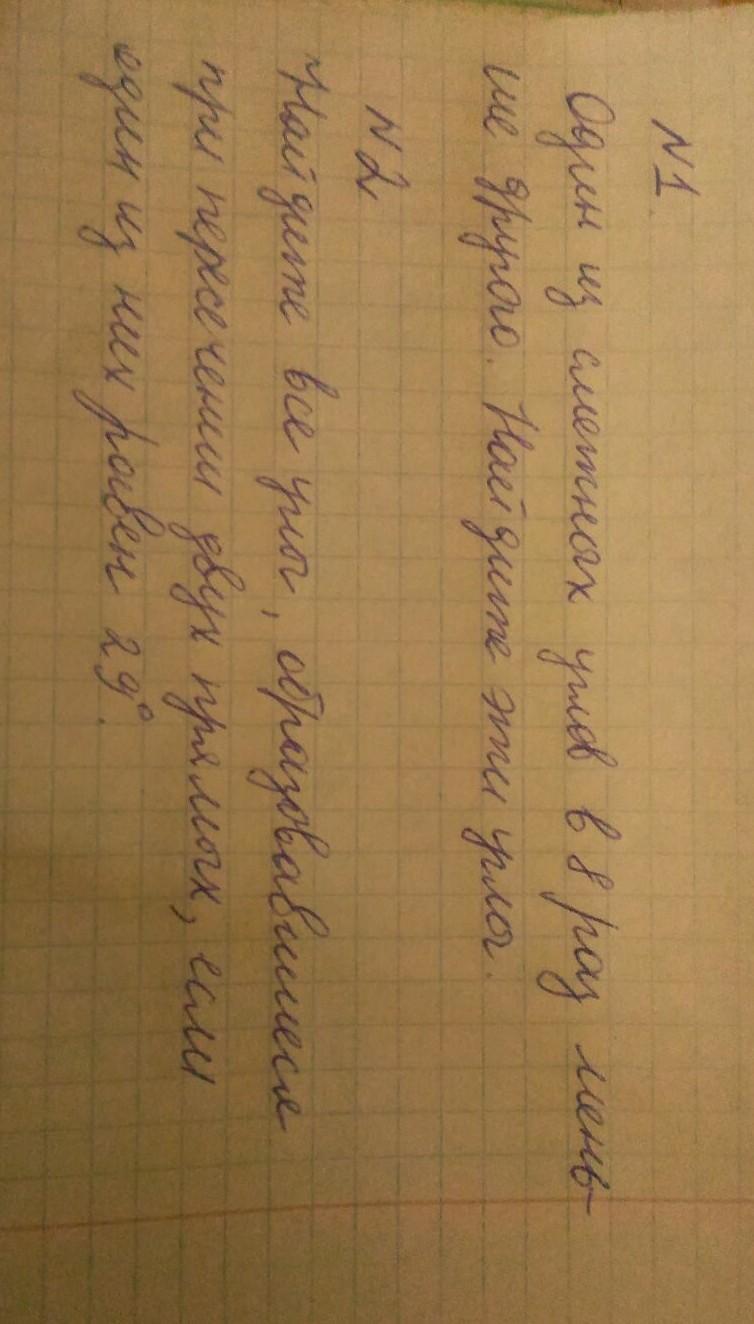 N1.
Один из смежных углов в 8 раз мень-
ше другого. Найдите эти углы.
N2
Найдите все углы, образовавшиеся
при пересечении двух прямых, если
один из них равен 29°.